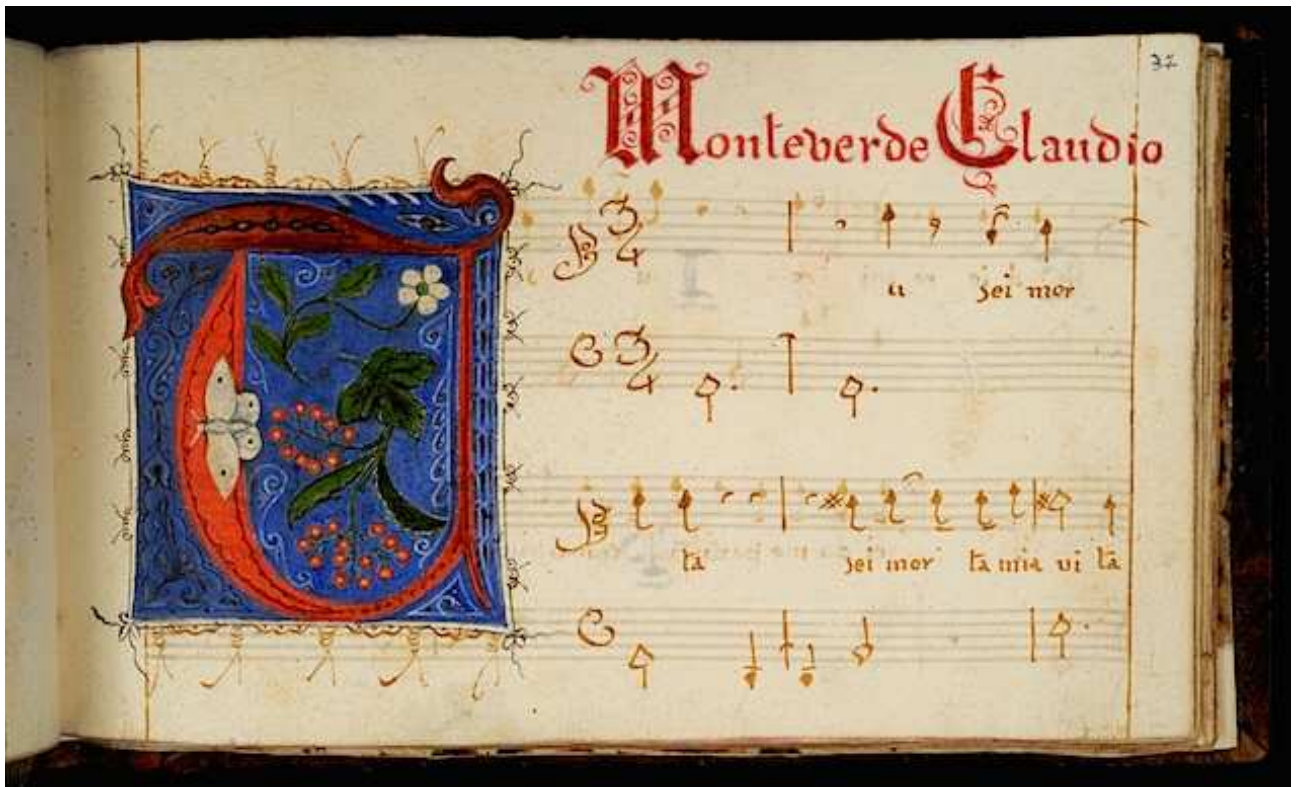 37
Monteverde Claudio
T
3/4
u sei mor
3/4
ta sei mor ta mia vi ta